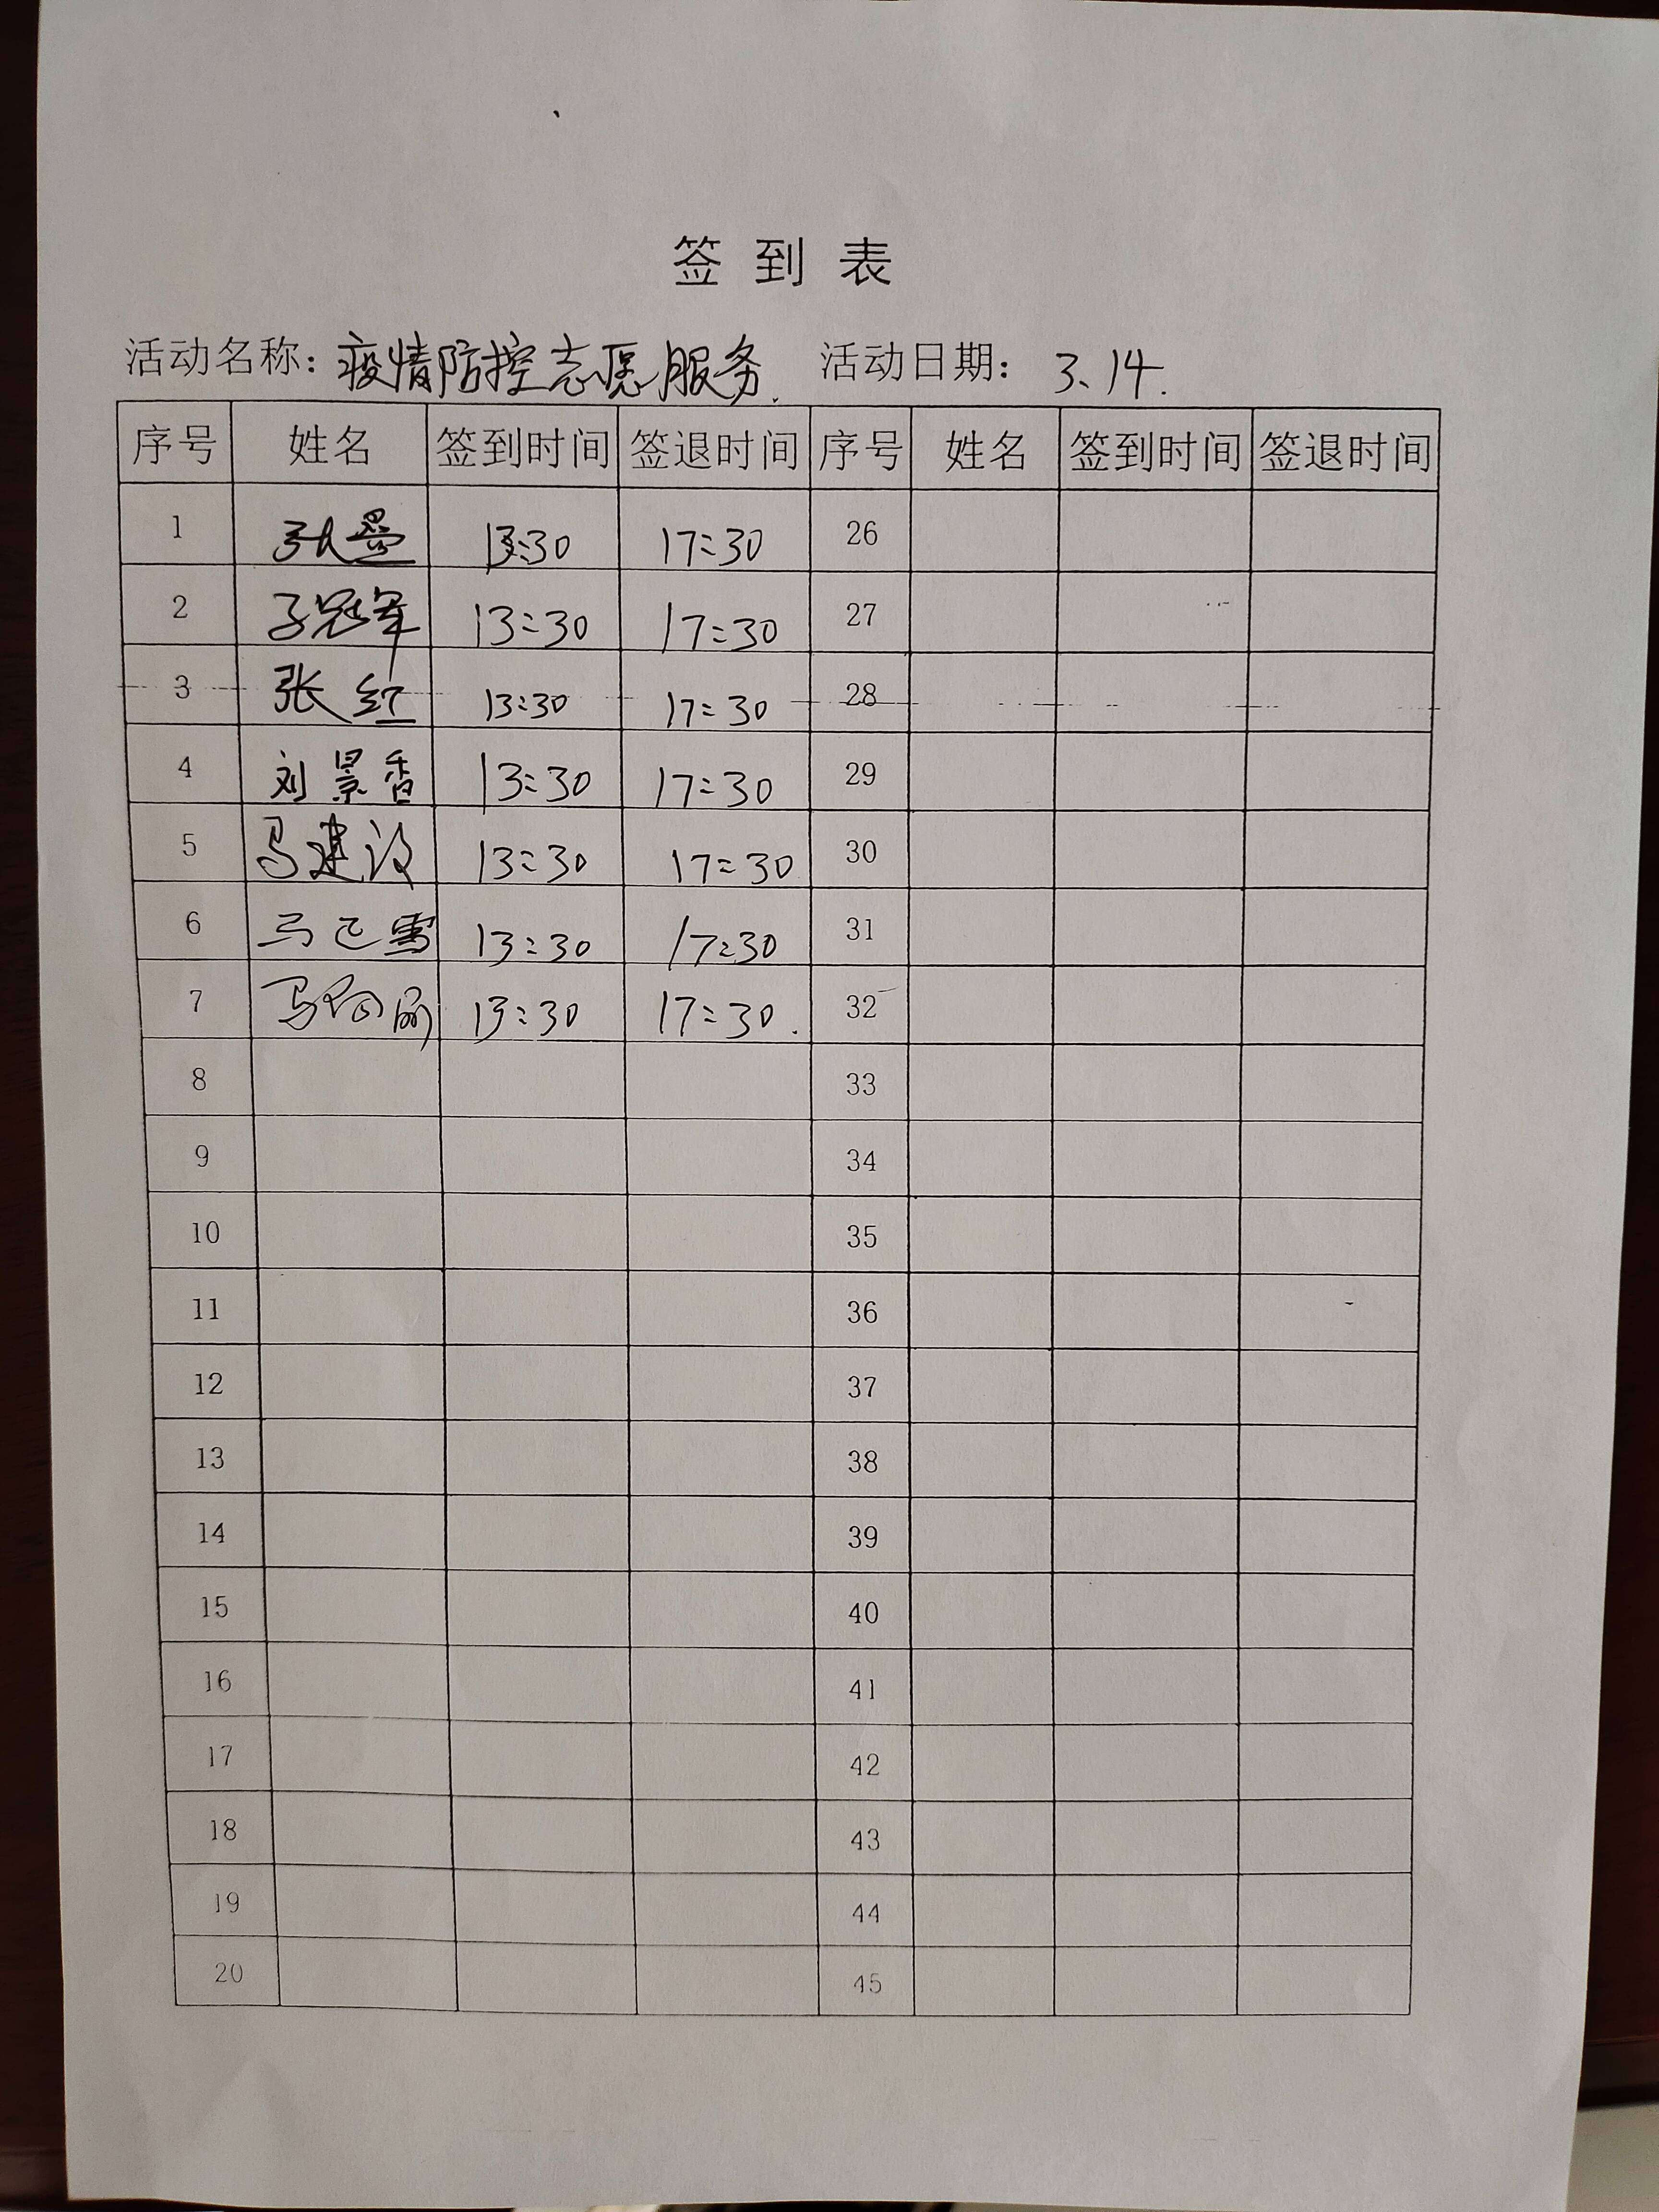 签到表
活动名称：疫情防控志愿服务. 活动日期：3、14.
序号 姓名 签到时间 签退时间 序号 姓名 签到时间 签退时间
1 张 13:30 17:30 26
2 冠军 13:30 17:30 27
3 张红 13:30 17:30 28
4 刘景香 13:30 17:30 29
5 马建设 13:30 17:30 30
6 马 雪 13:30 17:30 31
7 马 13:30 17:30. 32
8 33
9 34
10 35
11 36
12 37
13 38
14 39
15 40
16 41
17 42
18 43
19 44
20 45